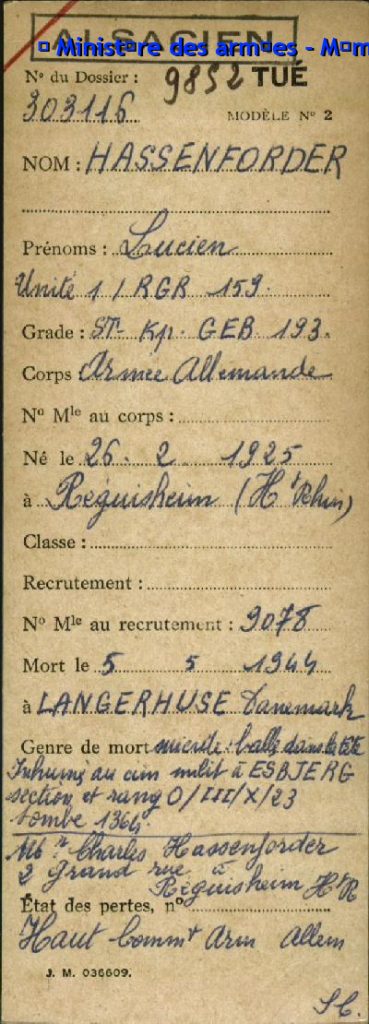 ALSACIEN
© Ministère des armées - Mém
N° du Dossier : 9852 TUÉ
303116 MODÈLE N° 2
NOM : HASSENFORDER
Prénoms : Lucien
Unité 1 / RGR 159.
Grade : ST- Kp. GEB 193.
Corps : Armée Allemande
N° Mle au corps :
Né le 26. 2 1925
à Réguisheim (Ht Rhin)
Classe :
Recrutement :
N° Mle au recrutement : 9078
Mort le 5 5 1944
à LANGERHUSE Danemark
Genre de mort suicide: balle dans la tête
Inhumé au cim milit à ESBJERG
section et rang O/III/X/23
tombe 1364.
Mr Charles Hassenforder
2 Grand rue à
Réguisheim Ht R
État des pertes, n°
Haut Commt Arm Allem
J. M. 036609.